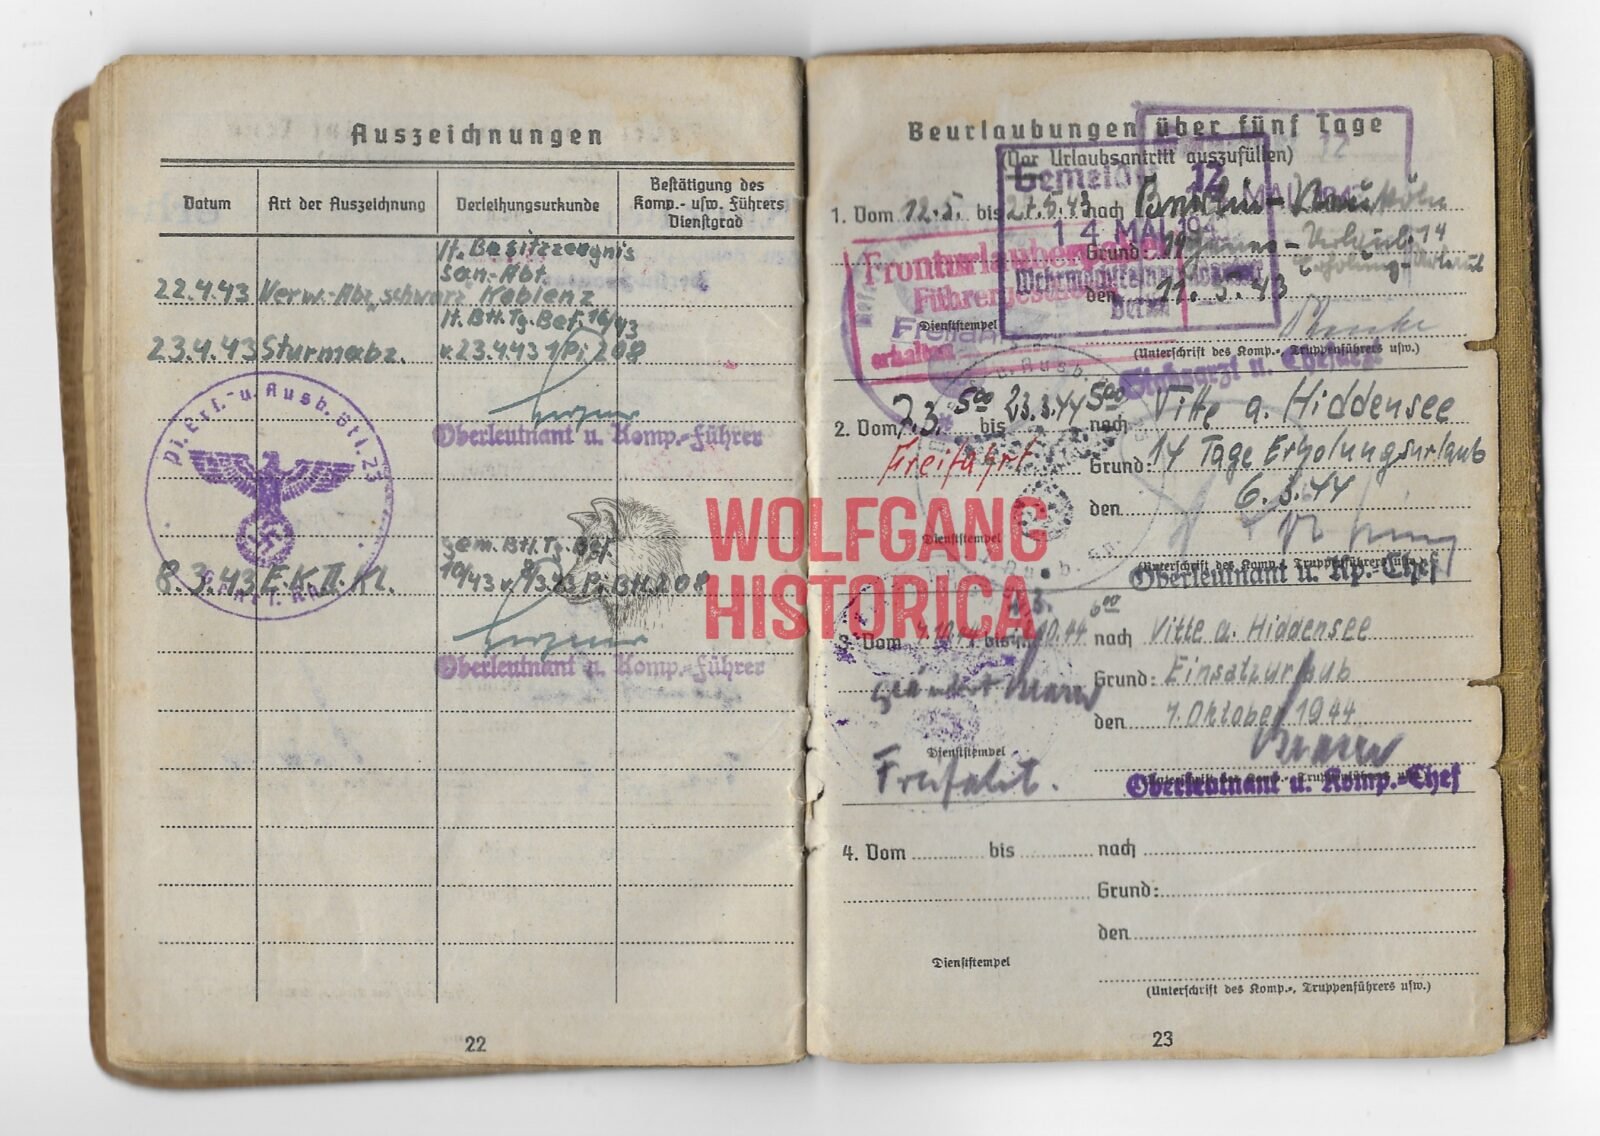 Auszeichnungen
Datum
Art der Auszeichnung
Verleihungsurkunde
Bestätigung des
Komp.- usw. Führers
Dienstgrad
lt. Besitzzeugnis
San.-Abt.
22.4.43 Verw.-Abz. schwarz Koblenz
lt. Btl. Tg. Bef. 16/43
23.4.43 Sturmabz. v. 23.4.43 1/Pi 208
Oberleutnant u. Komp.-Führer
Pi. Ers.- u. Ausb. Btl. 23
gem. Btl. Tg. Bef.
8.3.43 E.K. II. Kl. 10/43 v. 8/3.43 Pi. Btl. 208
Oberleutnant u. Komp.-Führer
22
WOLFGANG
HISTORICA
Beurlaubungen über fünf Tage
(Vor Urlaubsantritt auszufüllen)
12
1. Vom 12.5. bis 27.5.43 nach Berlin-Neukölln
14 MAI 194
Grund: Genes.-Urlaub 14
Erholung-Urlaub
Fronturlauberpaket
Führergeschenk
erhalten
den 11.5.43
Dienststempel
(Unterschrift des Komp.-, Truppenführers usw.)
Stabsarzt u. Chefarzt
2. Vom 7.3. 5⁰⁰ bis 23.3.44 5⁰⁰ nach Vitte a. Hiddensee
Freifahrt
Grund: 14 Tage Erholungsurlaub
den 6.3.44
Dienststempel
(Unterschrift des Komp.-, Truppenführers usw.)
Oberleutnant u. Kp.-Chef
3. Vom 4.10.44 bis 10.44 6⁰⁰ nach Vitte a. Hiddensee
geändert
Grund: Einsatzurlaub
den 1. Oktober 1944
Dienststempel
Freifahrt.
(Unterschrift des Komp.-, Truppenführers usw.)
Oberleutnant u. Komp.-Chef
4. Vom bis nach
Grund:
den
Dienststempel
(Unterschrift des Komp.-, Truppenführers usw.)
23